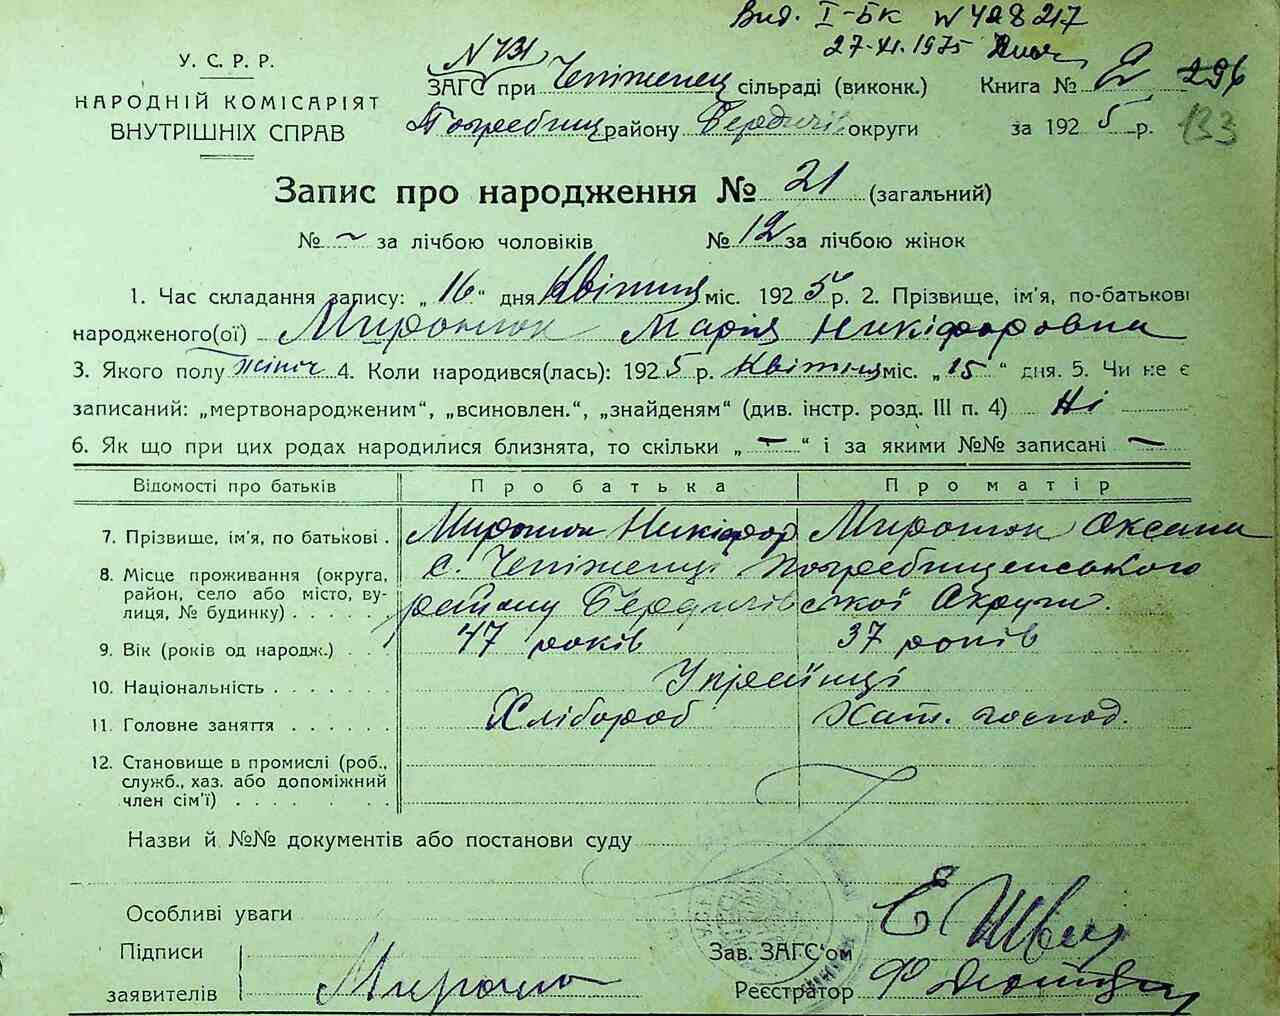 Вид. I-БК № 428217
27-XI.1975
У. С. Р. Р.
НАРОДНІЙ КОМІСАРІЯТ
ВНУТРІШНІХ СПРАВ
N 731
ЗАГС при Чепіженец сільраді (виконк.)
Погребищ району Бердичів округи
Книга № 2 296
за 1925 р. 133
Запис про народження № 21 (загальний)
№ ~ за лічбою чоловіків № 12 за лічбою жінок
1. Час складання запису: „16“ дня Квітня міс. 1925 р. 2. Прізвище, ім'я, по-батькові
народженого(ої) Мирошок Марія Никіфоровна
3. Якого полу жіноч 4. Коли народився(лась): 1925 р. Квітня міс. „15“ дня. 5. Чи не є
записаний: „мертвонародженим“, „всиновлен.“, „знайденям“ (див. інстр. розд. III п. 4) Ні
6. Як що при цих родах народилися близнята, то скільки „—“ і за якими №№ записані —
Відомості про батьків Про батька Про матір
7. Прізвище, ім'я, по батькові . Мирошок Никіфор Мирошок Оксана
8. Місце проживання (округа, с. Чепіженці Погребищенського
район, село або місто, ву-
лиця, № будинку) . . . . . району Бердичівської Округи.
9. Вік (років од народж.) . . . 47 років 37 років
10. Національність . . . . . . . Українці
11. Головне заняття . . . . . . Хлібороб Хат. господ.
12. Становище в промислі (роб.,
служб., хаз. або допоміжний
член сім'ї) . . . . . . . .
Назви й №№ документів або постанови суду
Особливі уваги
Підписи
заявителів
Зав. ЗАГС'ом
Реєстратор